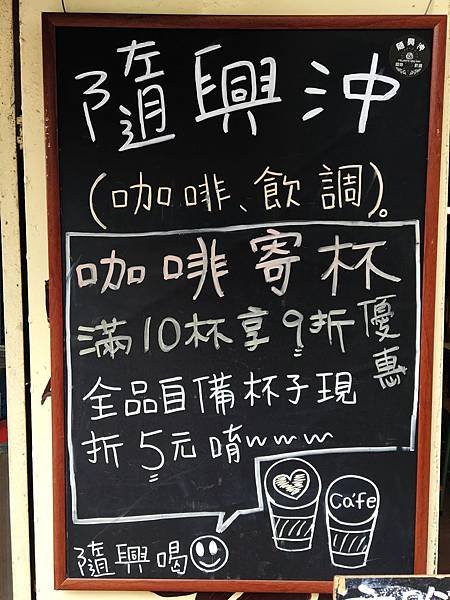 隨興沖
隨興沖
(咖啡、飲調)。
咖啡寄杯
滿10杯享9折優惠
全品自備杯子現
折5元唷www
Ca'fe
隨興喝